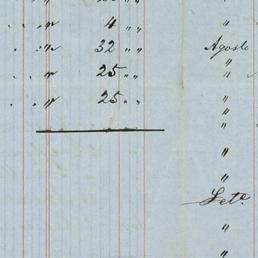 " 4 " "
" 32 " " Agosto
" 25 " " "
" 25 " " "
"
"
"
Set.e
"
"